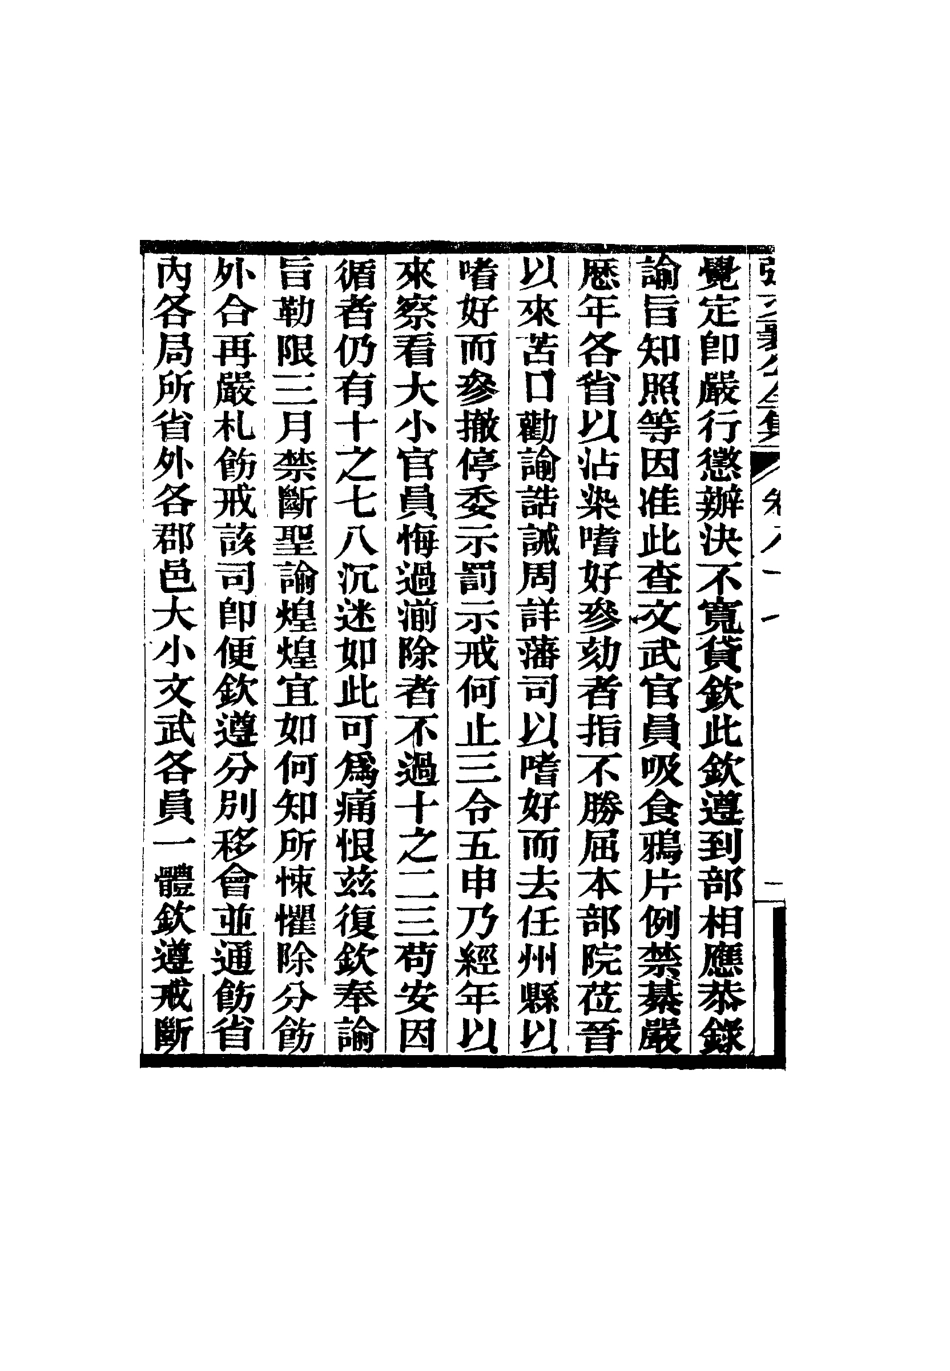 覺定卽嚴行懲辦決不寬貸欽此欽遵到部相應恭錄
諭旨知照等因准此查文武官員吸食鴉片例禁綦嚴
歷年各省以沾染嗜好參劾者指不勝屈本部院莅晉
以來苦口勸諭誥誡周詳藩司以嗜好而去任州縣以
嗜好而參撤停委示罰示戒何止三令五申乃經年以
來察看大小官員悔過湔除者不過十之二三苟安因
循者仍有十之七八沉迷如此可爲痛恨茲復欽奉諭
旨勒限三月禁斷聖諭煌煌宜如何知所悚懼除分飭
外合再嚴札飭戒該司卽便欽遵分別移會並通飭省
內各局所省外各郡邑大小文武各員一體欽遵戒斷